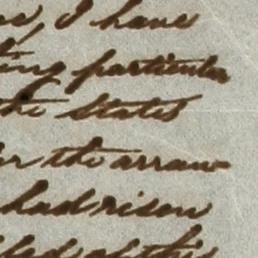 I have
particular
the States
the arran
had risen
of this